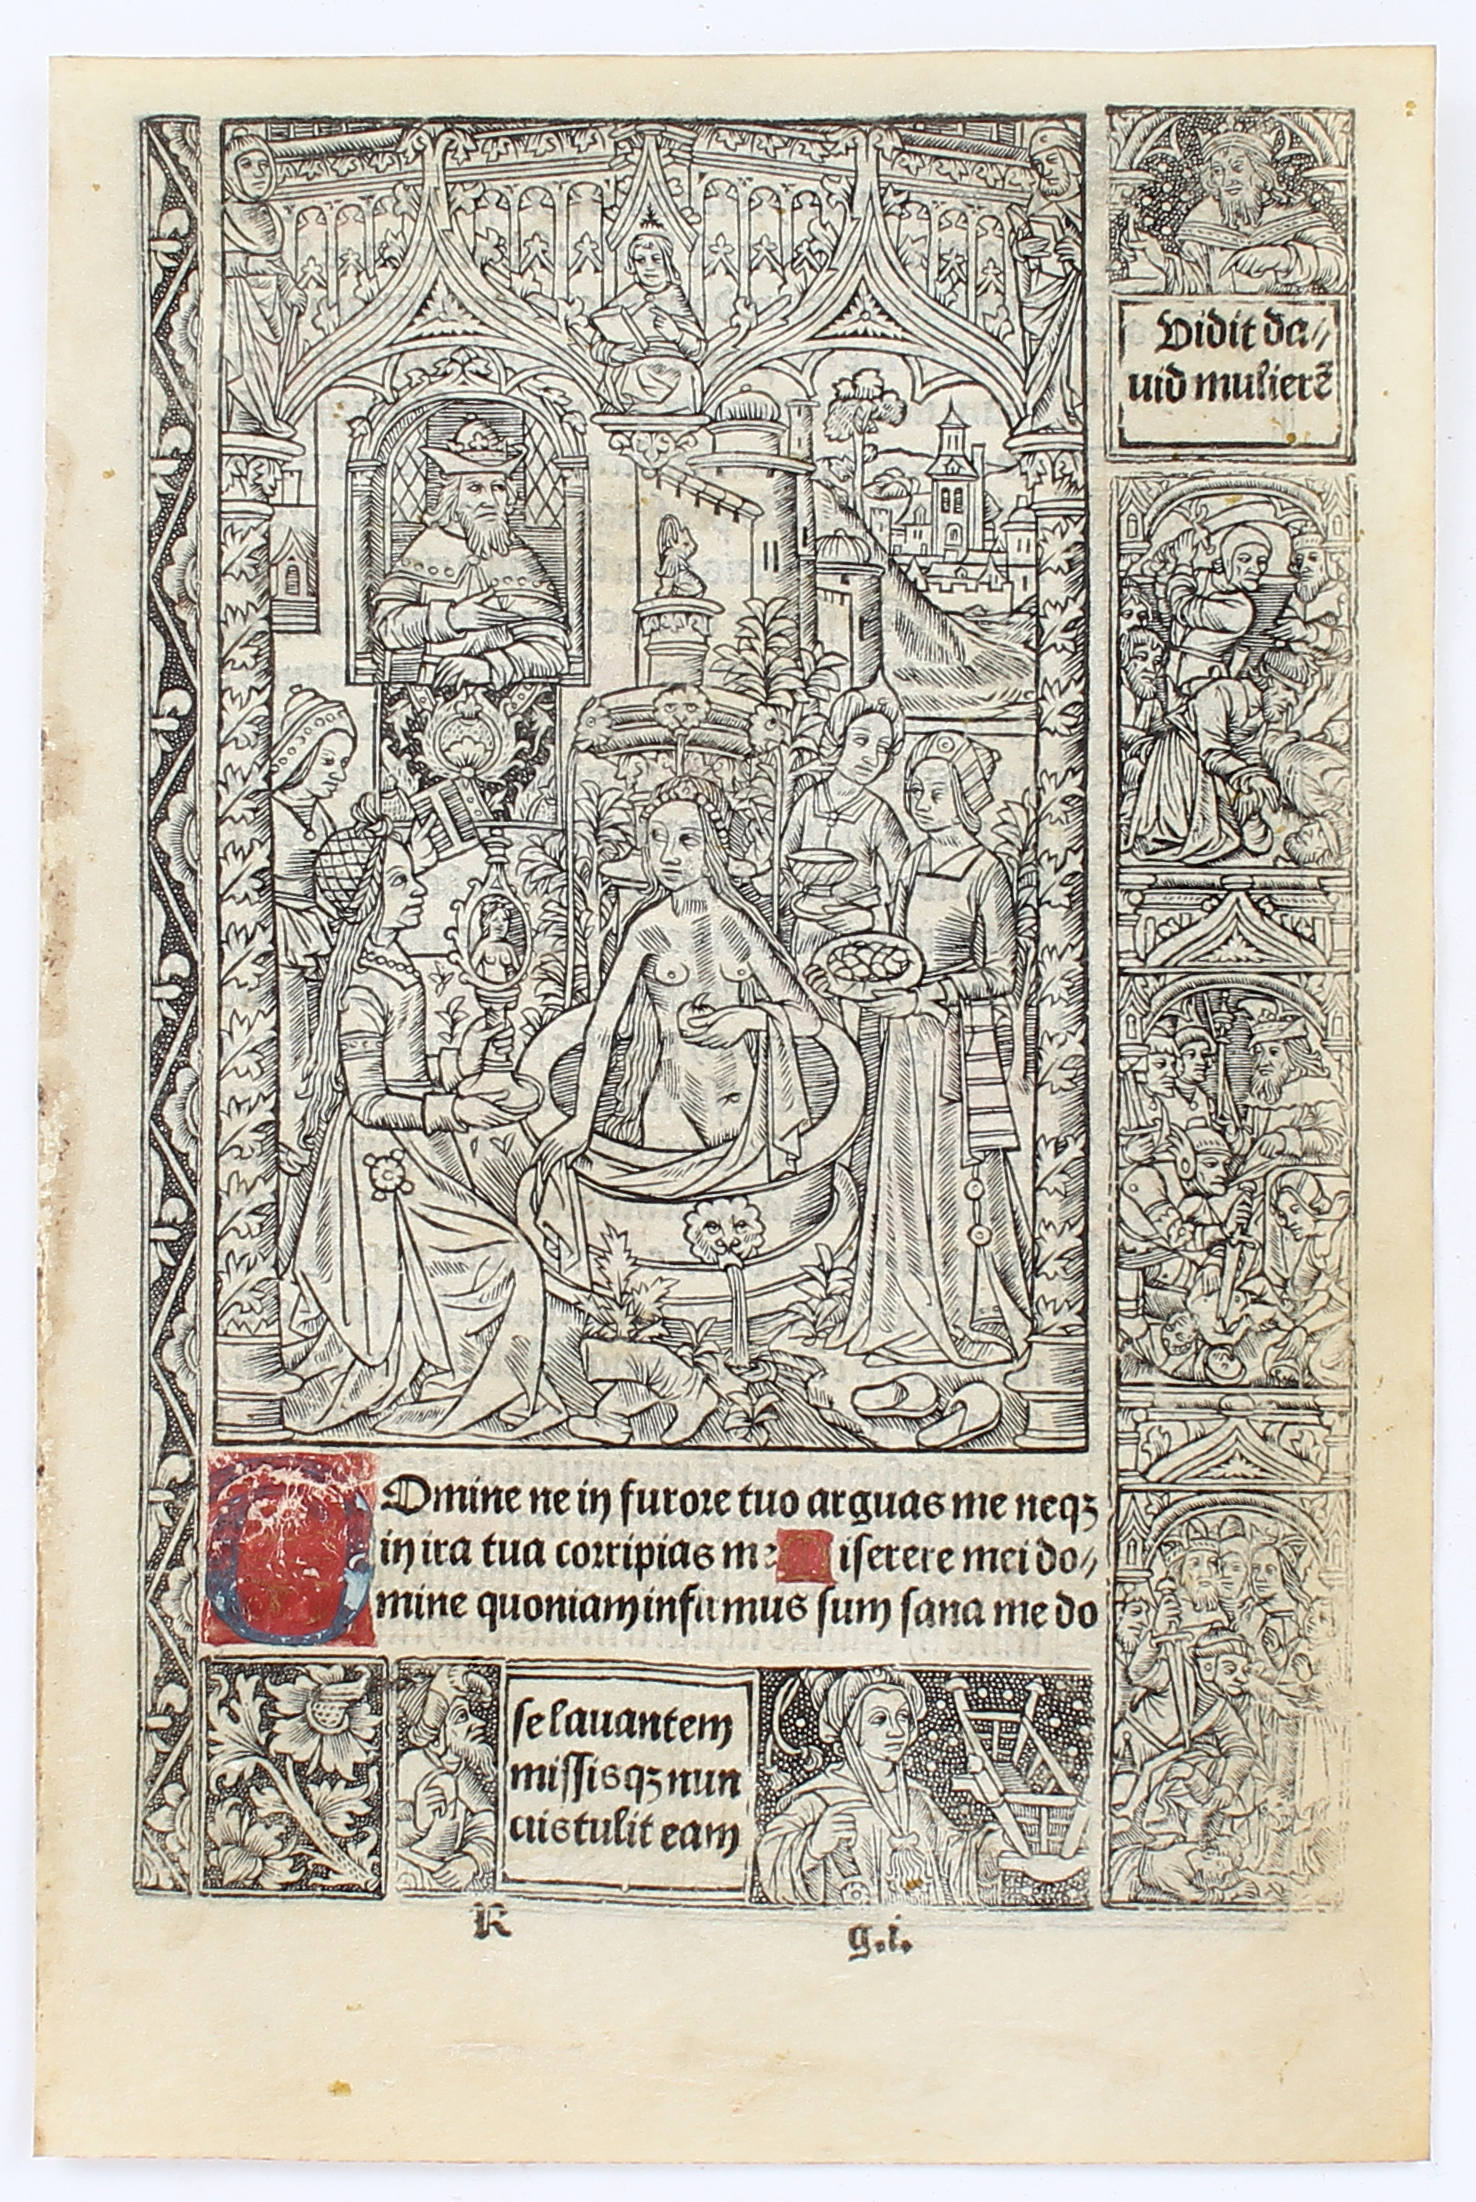 Vidit da//
uid mulierē
Domine ne in furore tuo arguas me neqꝫ
in ira tua corripias me Miserere mei do//
mine quoniam infirmus sum sana me do
se lauantem
missisqꝫ nun
ciis tulit eam
R g.i.